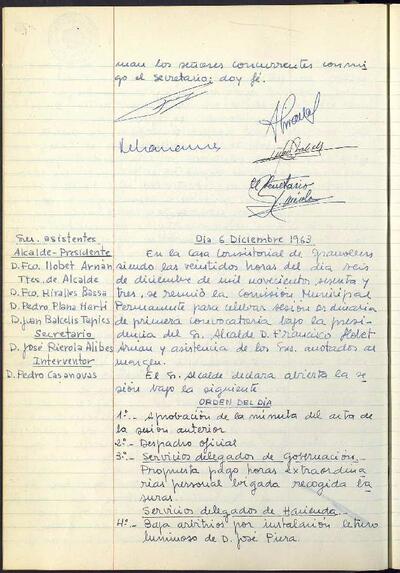 man los señores concurrentes conmi
go el secretario; doy fé.
El Secretario
Sres. asistentes
Alcalde-Presidente
D. Fco. Llobet Arnán
Ttes. de Alcalde
D. Fco. Miralles Bassa
D. Pedro Plana Martí
D. Juan Balcells Tapies
Secretario
D. José Rierola Alibes
Interventor
D. Pedro Casanovas
Día 6 Diciembre 1963
En la Casa Consistorial de Granollers
siendo las veintidos horas del día seis
de diciembre de mil novecientos sesenta y
tres, se reunió la Comisión Municipal
Permanente para celebrar sesión ordinaria
de primera convocatoria bajo la presi
dencia del Sr. Alcalde D. Francisco Llobet
Arnau y asistencia de los Sres. anotados al
margen.
El Sr. Alcalde declara abierta la se
sión bajo la siguiente
ORDEN DEL DÍA
1º.- Aprobación de la minuta del acta de
la sesión anterior
2º.- Despacho oficial
3º.- Servicios delegados de gobernación.-
Propuesta pago horas extraordina
rias personal brigada recogida ba
suras.
Servicios delegados de Hacienda.-
4º.- Baja arbitrios por instalación letrero
luminoso de D. José Piera.